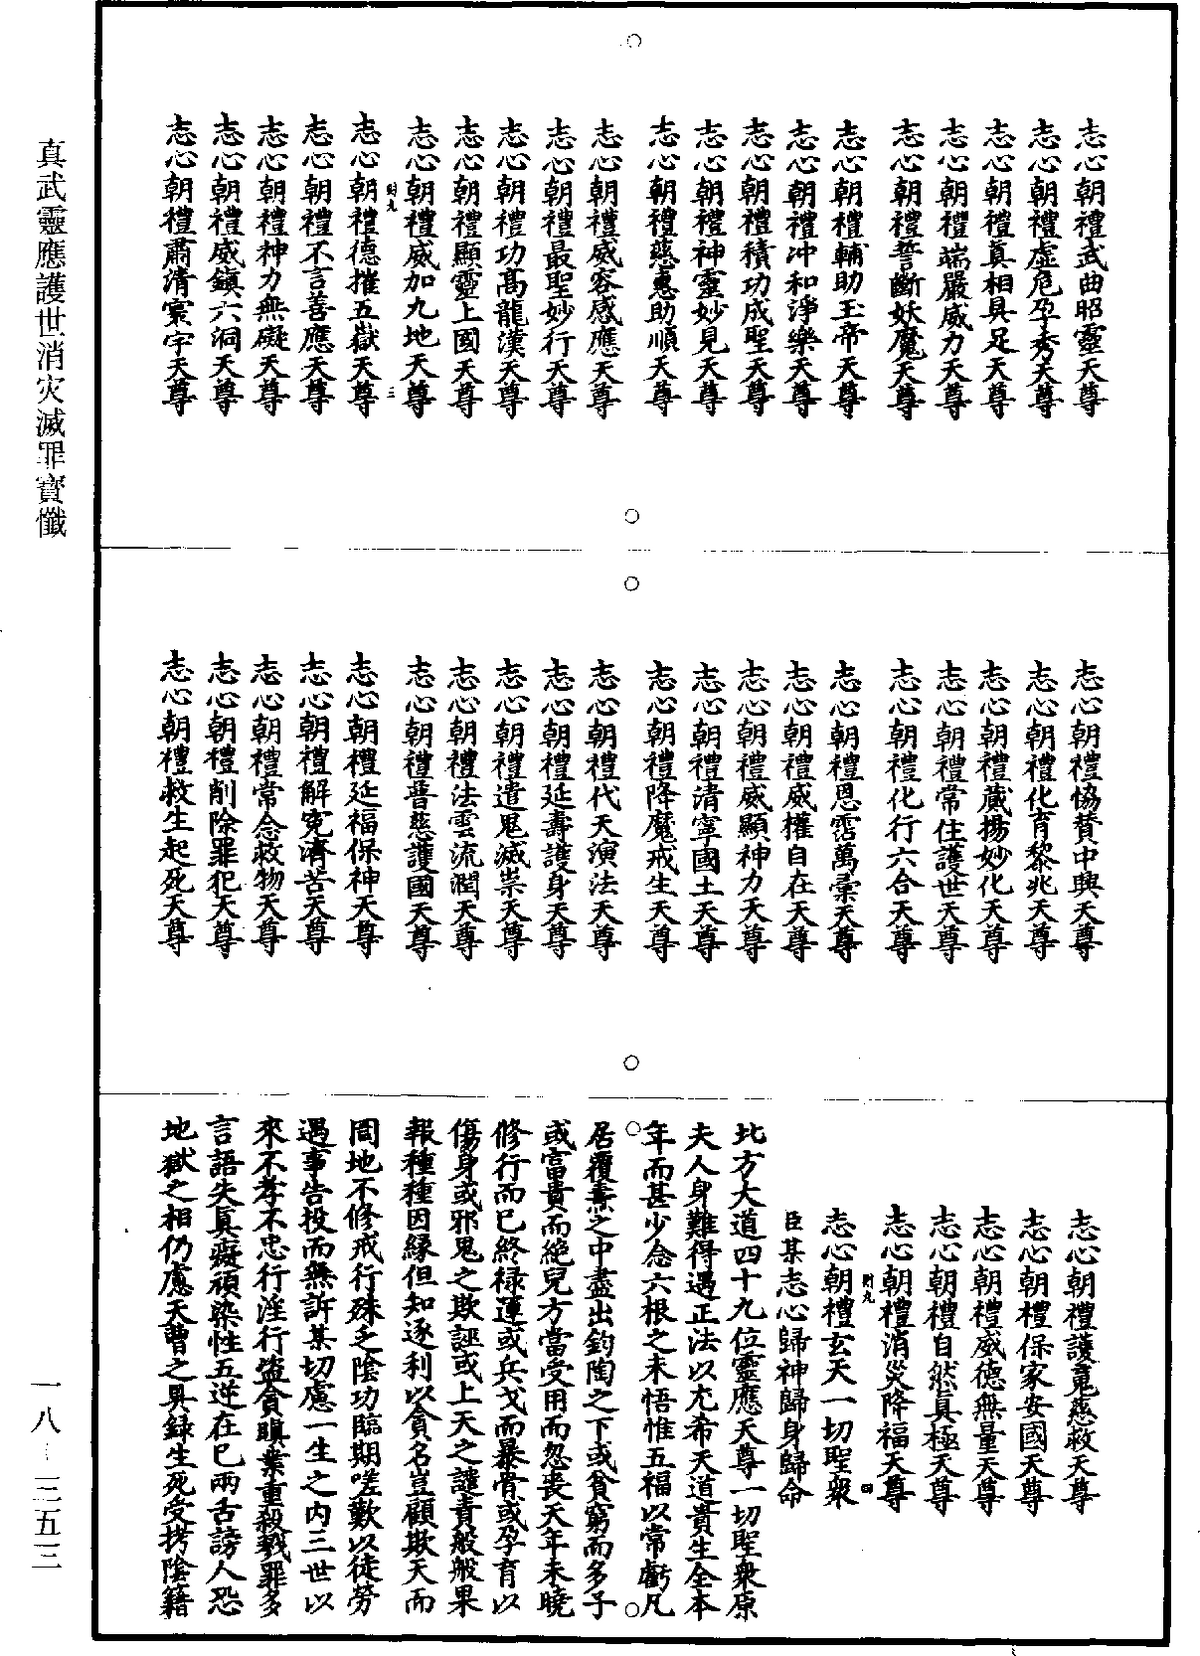 志心朝禮武曲昭靈天尊
志心朝禮虛危孕秀天尊
志心朝禮真相具足天尊
志心朝禮端嚴威力天尊
志心朝禮誓斷妖魔天尊
志心朝禮輔助玉帝天尊
志心朝禮冲和淨樂天尊
志心朝禮積功成聖天尊
志心朝禮神靈妙見天尊
志心朝禮慈惠助順天尊
志心朝禮威容感應天尊
志心朝禮最聖妙行天尊
志心朝禮功高龍漢天尊
志心朝禮顯靈上國天尊
志心朝禮威加九地天尊
財九 三
志心朝禮德摧五嶽天尊
志心朝禮不言善應天尊
志心朝禮神力無礙天尊
志心朝禮威鎮六洞天尊
志心朝禮肅清寰宇天尊
志心朝禮協賛中興天尊
志心朝禮化育黎兆天尊
志心朝禮蕆揚妙化天尊
志心朝禮常住護世天尊
志心朝禮化行六合天尊
志心朝禮恩霑萬彙天尊
志心朝禮威權自在天尊
志心朝禮威顯神力天尊
志心朝禮清寧國土天尊
志心朝禮降魔戒生天尊
志心朝禮代天演法天尊
志心朝禮延壽護身天尊
志心朝禮遣鬼滅祟天尊
志心朝禮法雲流潤天尊
志心朝禮普慈護國天尊
志心朝禮延福保神天尊
志心朝禮解寃濟苦天尊
志心朝禮常念救物天尊
志心朝禮削除罪犯天尊
志心朝禮救生起死天尊
志心朝禮護竟慈救天尊
志心朝禮保家安國天尊
志心朝禮威德無量天尊
志心朝禮自然真極天尊
志心朝禮消災降福天尊
財九 四
志心朝禮玄天一切聖衆
臣某志心歸神歸身歸命
北方大道四十九位靈應天尊一切聖衆原
夫人身難得遇正法以尤希天道貴生全本
年而甚少念六根之未悟惟五福以常虧凡
居覆燾之中盡出鈞陶之下或貧窮而多子
或富貴而絕兒方當受用而忽喪天年未曉
修行而已終禄運或兵戈而暴骨或孕育以
傷身或邪鬼之欺誣或上天之譴責般般果
報種種因緣但知逐利以貪名豈顧欺天而
罔地不修戒行殊乏陰功臨期嗟歎以徒勞
遇事告投而無許某切慮一生之内三世以
來不孝不忠行淫行盜貪瞋業重殺戮罪多
言語失真癡頑染性五逆在已兩舌謗人恐
地獄之相仍慮天曹之具録生死受拷陰籍
真武靈應護世消灾滅罪寶懺
一八——三五三